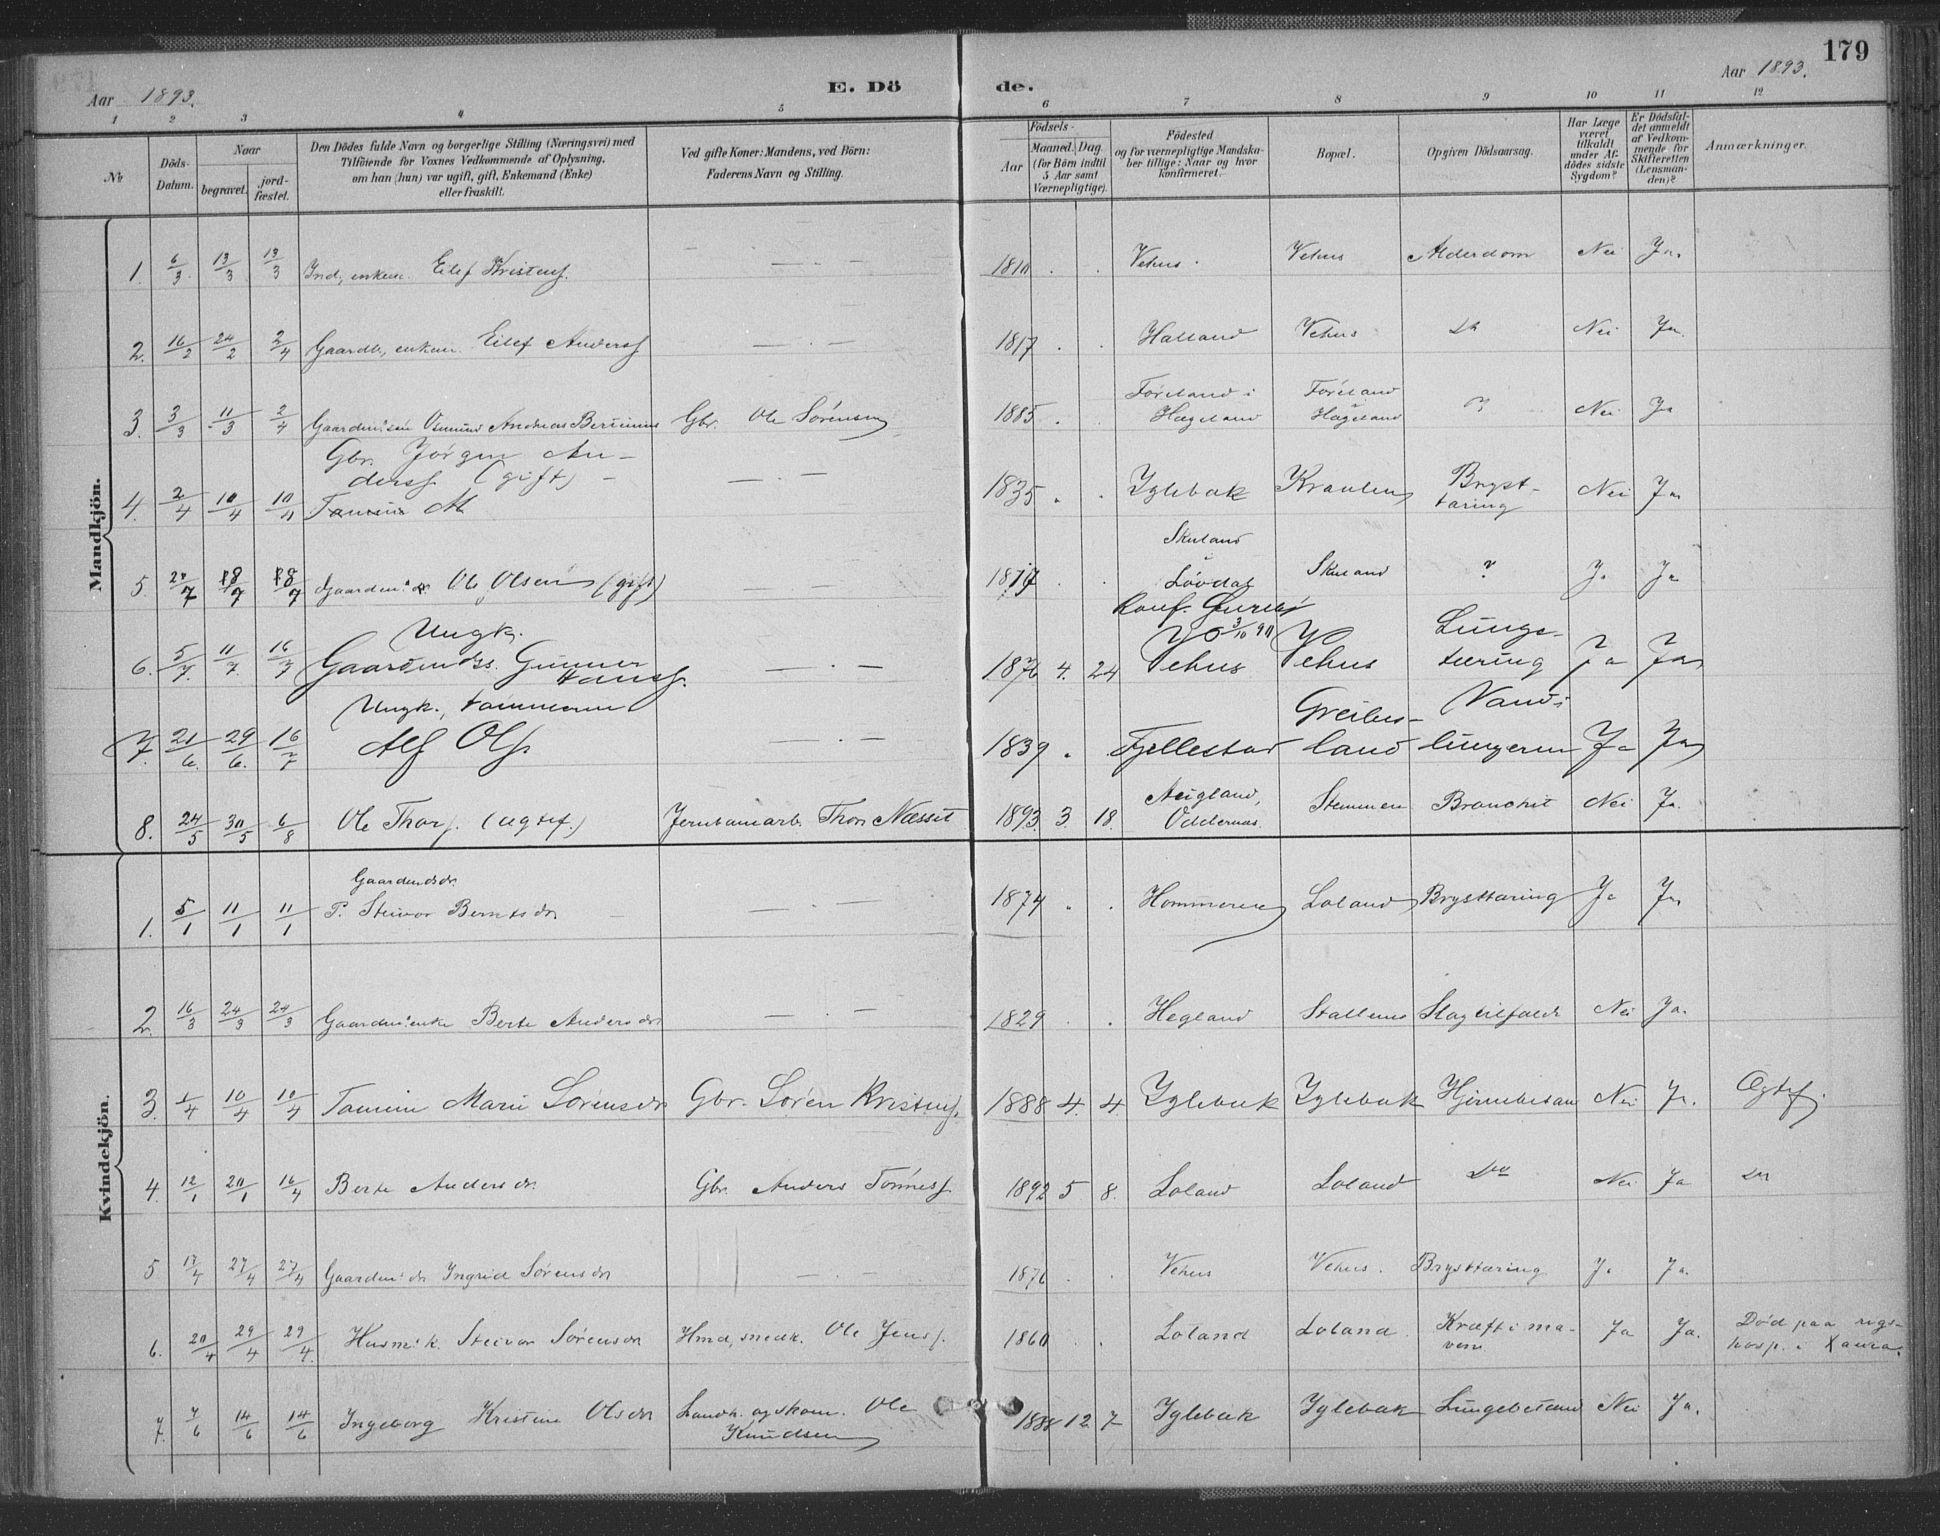 179
Aar 1893.
E. Dö
de.
Aar 1893.
1 2 3 4 5 6 7 8 9 10 11 12
No
Döds-
Datum.
Naar
begravet.
jord-
fæstet.
Den Dödes fulde Navn og borgerlige Stilling (Næringsvei) med
Tilföiende for Voxnes Vedkommende af Oplysning,
om han (hun) var ugift, gift, Enkemand (Enke)
eller fraskilt.
Ved gifte Koner: Mandens, ved Börn:
Faderens Navn og Stilling.
Födsels-
Aar
Maaned. Dag.
(for Börn indtil
5 Aar samt
Værnepligtige).
Födested
og for værnepligtige Mandska-
ber tillige: Naar og hvor
konfirmeret.
Bopæl.
Opgiven Dödsaarsag.
Har Læge
været
tilkaldt
under Af-
dödes sidste
Sygdom?
Er Dödsfal-
det anmeldt
af Vedkom-
mende for
Skifteretten
(Lensman-
den)?
Anmærkninger.
Mandkjön.
1. 6/3 13/3 13/3 Ind, enkem. Eilef Kristens. — . — 1810 . . Vehus. Vehus Alderdom Nei Ja.
2. 16/2 24/2 2/4 Gaardb, enkem. Eilef Anders. — . — 1817 . . Halland Vehus Do Nei Ja.
3. 3/3 11/3 2/4 Gaardm. sön Osmund Andreas Gbr. Ole Sørensen 1885 . Føreland i
Hægeland Føreland
i
Hægeland ? Nei Ja
Gbr. Jörgen An-
ders. (gift)
4. 2/4 10/4 Tomine M — . — 1835 . . Iglebæk Bryst-
tæring Nei Ja
5 18/7 18/7 Gaardm. Ole Olsen (gift) — . — Skuland
i
Løvdal Skuland ? Ja Ja
Ungk.
6. 5/7. 11/7. 16/7 Gaardmds. Gunner
Hans. — . — 1876 4. 24 Konf.
3/10 90
Vehus Vehus Lunge-
tæring Ja Ja
Ungk., tømmerm
7. 21/6. 29/6. 16/7 Alf Ols. — . — 1839 . Fjellestad Greibes-
land Vand i
lungerne Ja Ja
8. 24/5 30/5 6/8 Ole Thors. (ægtef.) Jernbanearb. Thor Næsset 1893 3. 18. Augland,
Oddernæs. Stemmen Bronchit Nei Ja.
Kvindekjön.
Gaardmdsdr.
1. 5/1 11/1 11/1 P. Steivor Berntsdr — . — 1874 . . Hommeren Loland Brysttæring Ja Ja
2. 16/3 24/3 24/3 Gaardm. enke Berte Andersdr — . — 1829 . . Hegland Stallems Slagtilfælde Nei Ja.
3. 1/4 10/4 10/4 Tomine Marie Sørensdr Gbr. Søren Kristens. 1888 4. 4 Iglebæk Iglebæk Hjernebetæn Nei Ja. Ægtef.
4. 12/1 20/1 16/4 Berte Andersdr. Gbr. Anders Tønness. 1892 5 8. Loland Loland Do Nei Ja Do
5 17/4 27/4 27/4 Gaardm. dr Ingrid Sørensdr — . — 1876 . . Vehus Vehus. Brysttæring Ja Ja.
6. 20/4 29/4 29/4. Husm. k. Steivor Sørensdr Hmd, snedk. Ole Jens. 1860 . Loland Loland. Kræft i ma-
ven Ja Ja. Død paa rigs-
hosp. i Xania.
7. 7/6 14/6 14/6 Ingeborg Kristine Olsdr Landh. og skom. Ole
Knudsen 12 7 Iglebæk Iglebæk Lungebetænd Nei Ja.